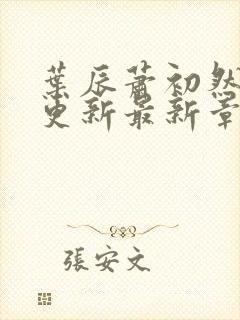 葉辰蕭初然
更新最新章
張安文